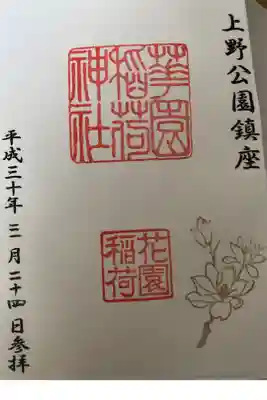 上野公園鎮座
華園
稲荷
神社
花園
稲荷
平成三十年三月二十四日参拝